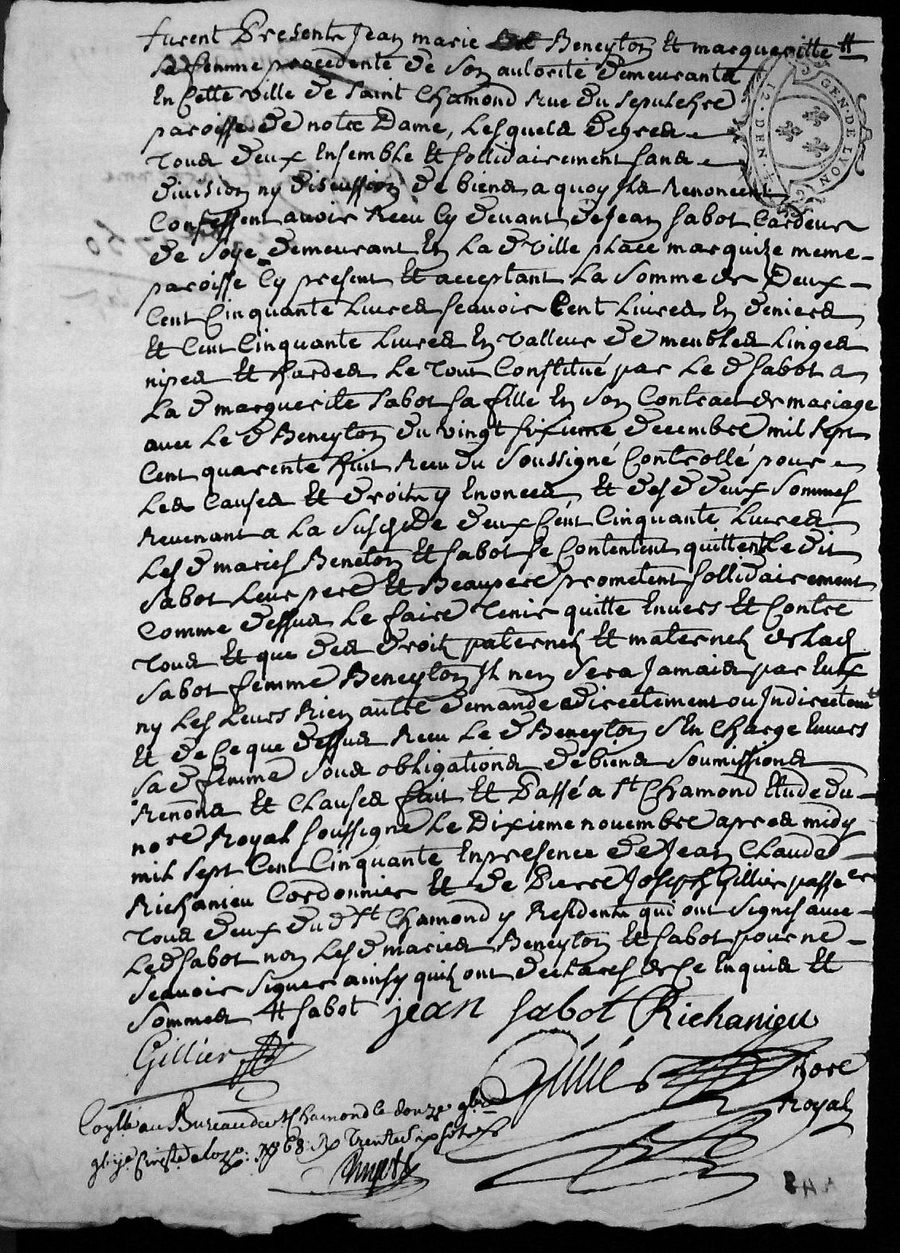 furent Presents Jean marie Beneyton et margueritte #
sa femme procedente de son autorité demeurants
En Cette ville de Saint Chamond Rue du sepulchre
paroisse de notre Dame, Lesquels de gres
tous deux Ensemble et sollidairement sans
division ny discussion de biens a quoy ils Renoncent
Confessent avoir Receu Cy devant de Jean Sabot Cardeur
de Soye demeurant En La d ville place marquize meme
paroisse Cy present et acceptant La Somme de Deux
Cent Cinquante Livres scavoir Cent Livres En deniers
et Cent Cinquante Livres En valleur de meubles Linges
nipes et hardes Le tout Constitué par Le d Sabot a
La d marguerite Sabot sa fille En son Contract de mariage
avec Le d Beneyton du vingt sixieme decembre mil sept
Cent quarente huit Receu du Soussigné Controllé pour
Les Causes et droits y Enonces et desd deux Sommes
Revenant a La susd de deux Cent Cinquante Livres
Les d mariés Beneton et Sabot se Contentent quittent Le dit
Sabot Leur pere et Beaupere prometent sollidairement
Comme dessus Le faire tenir quitte Envers et Contre
tous et que des droits paternels et maternels de Lad
Sabot femme Beneyton Il n'en Sera Jamais par Eux
ny Les Leurs Rien autre demandé directement ou Indirectemt
et de Ce que dessus Receu Le d Beneyton s'En Charge Envers
Sa d femme sous obligations de biens soumissions
Renons et Clauses fait et Passé a St Chamond Etude du
nore Royal soussigné Le Dixieme novembre apres midy
mil sept Cent Cinquante En presence de Jean Claude
Richanieu Cordonnier et de Pierre Joseph Gillier passer
tous deux dud St Chamond y Residents qui ont Signés avec
Le d Sabot non Les d mariés Beneyton et Sabot pour ne
Scavoir Signer ainsy quils ont declarés de Ce Enquis et
Sommés # Sabot jean sabot Richanieu
Gillier
nore
Royal
au Bureau de St Chamond le douze
GEN. DE LYON
12. DEN.